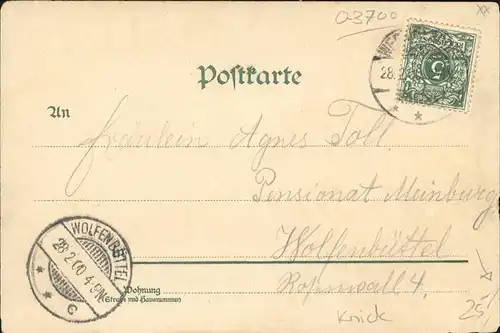 03700
xx
Postkarte
28.2.00
5
An
Fräulein Agnes Toll
Pensionat Meinburg
Wolfenbüttel
WOLFENBÜTTEL
28.2.00 4-5N.
* * c
Wohnung
(Straße und Hausnummer)
4.
Knick
25,